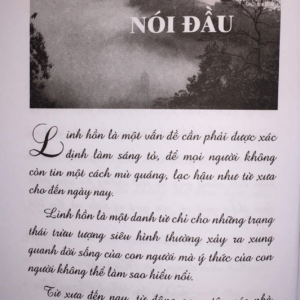 NÓI ĐẦU
Linh hồn là một vấn đề cần phải được xác
định làm sáng tỏ, để mọi người không
còn tin một cách mù quáng, lạc hậu như từ xưa
cho đến ngày nay.
Linh hồn là một danh từ chỉ cho những trạng
thái trừu tượng siêu hình thường xảy ra xung
quanh đời sống của con người mà ý thức của con
người không thể làm sao hiểu nổi.
Từ xưa đến nay, từ đông